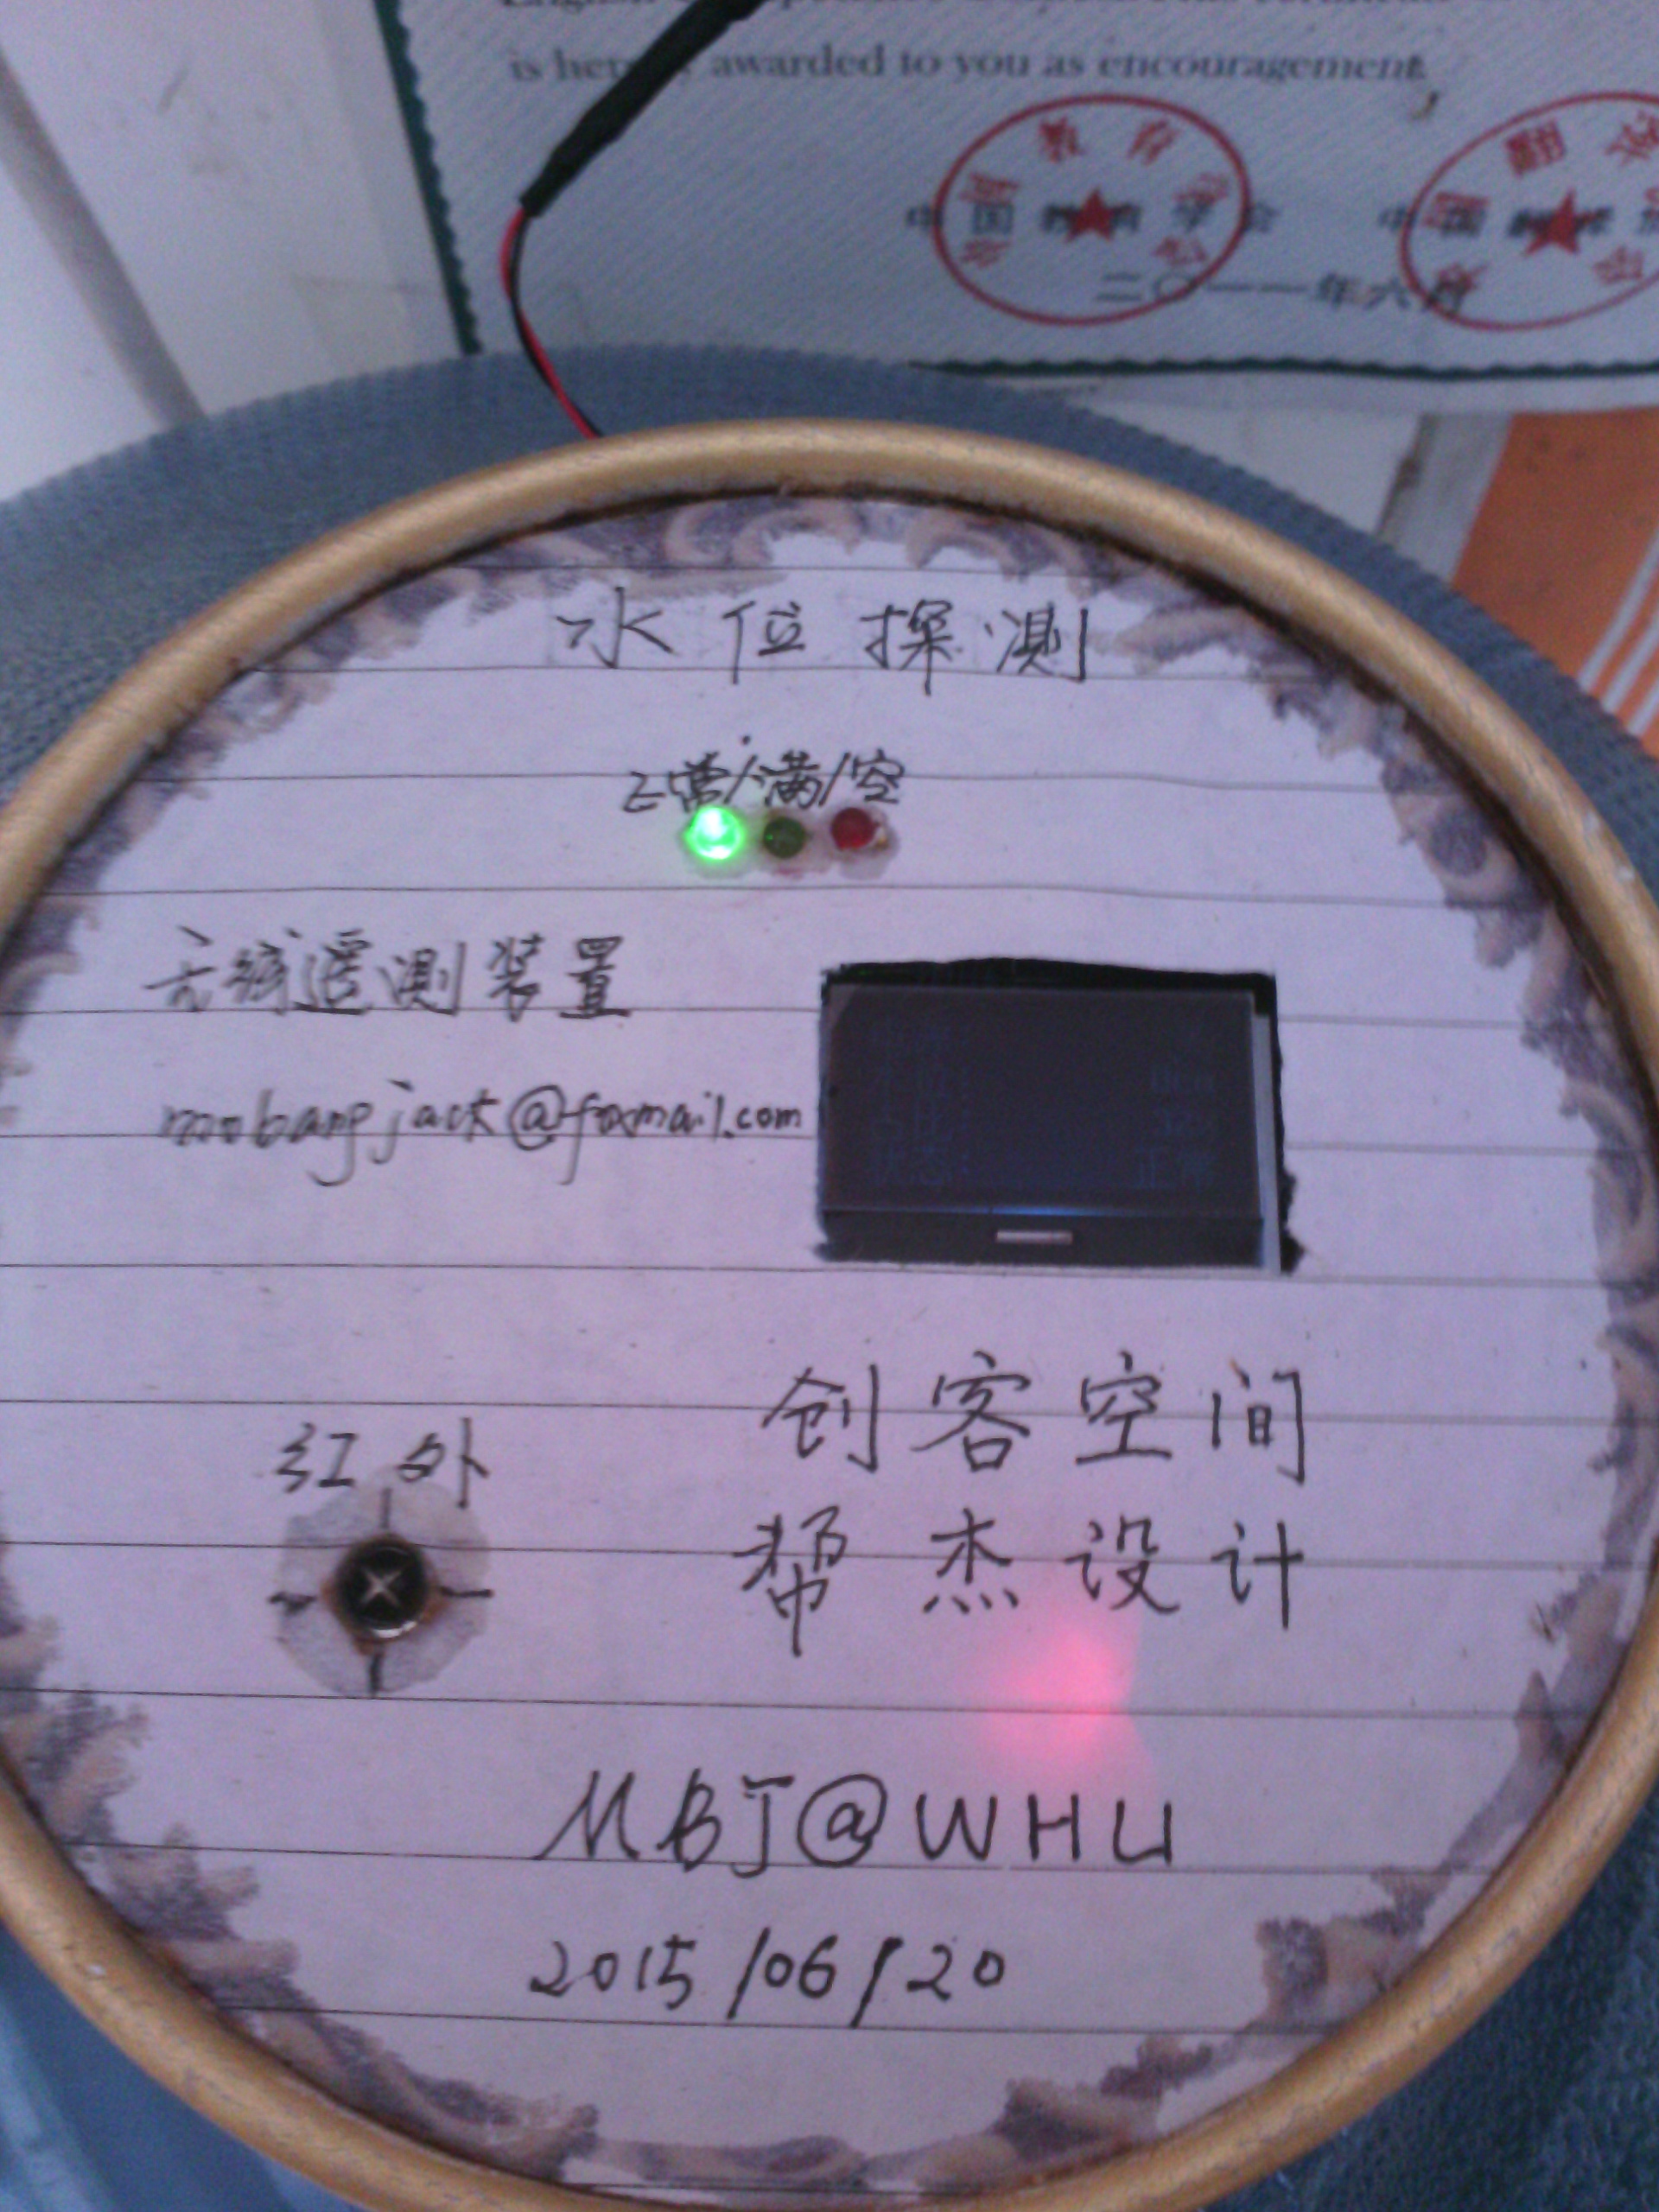 is hereby awarded to you as encouragement.
中国教育学会
二〇一一年六月
水位探测
正常/满/空
无线遥测装置
mobangjack@foxmail.com
状态: 正常
红外
创客空间
帮杰设计
MBJ@WHU
2015/06/20